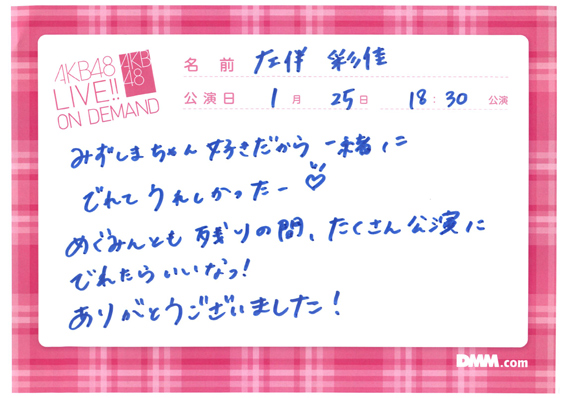 AKB48
LIVE!!
ON DEMAND
AKB
48
名 前 左伴 彩佳
公演日 1月 25日 18:30 公演
みずしまちゃん 好きだから 一緒に
でれて うれしかったー ♡
めぐみんとも 残りの間、たくさん公演に
でれたらいいなっ!
ありがとうございました!
DMM.com